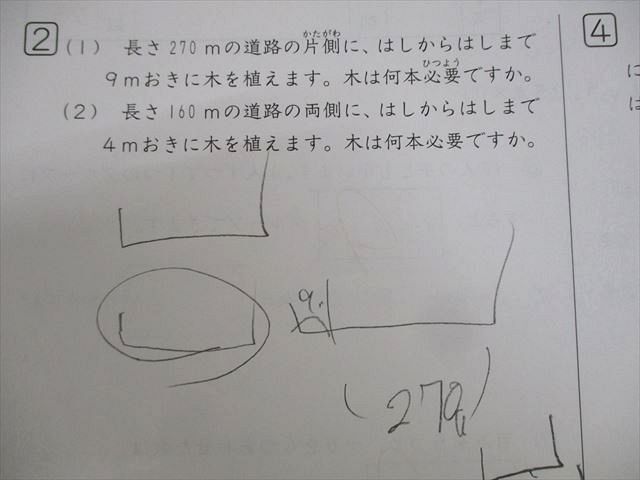 2 (1) 長さ270mの道路の片側に、はしからはしまで
かたがわ
9mおきに木を植えます。木は何本必要ですか。
ひつよう
(2) 長さ160mの道路の両側に、はしからはしまで
4mおきに木を植えます。木は何本必要ですか。
4
に
は
9